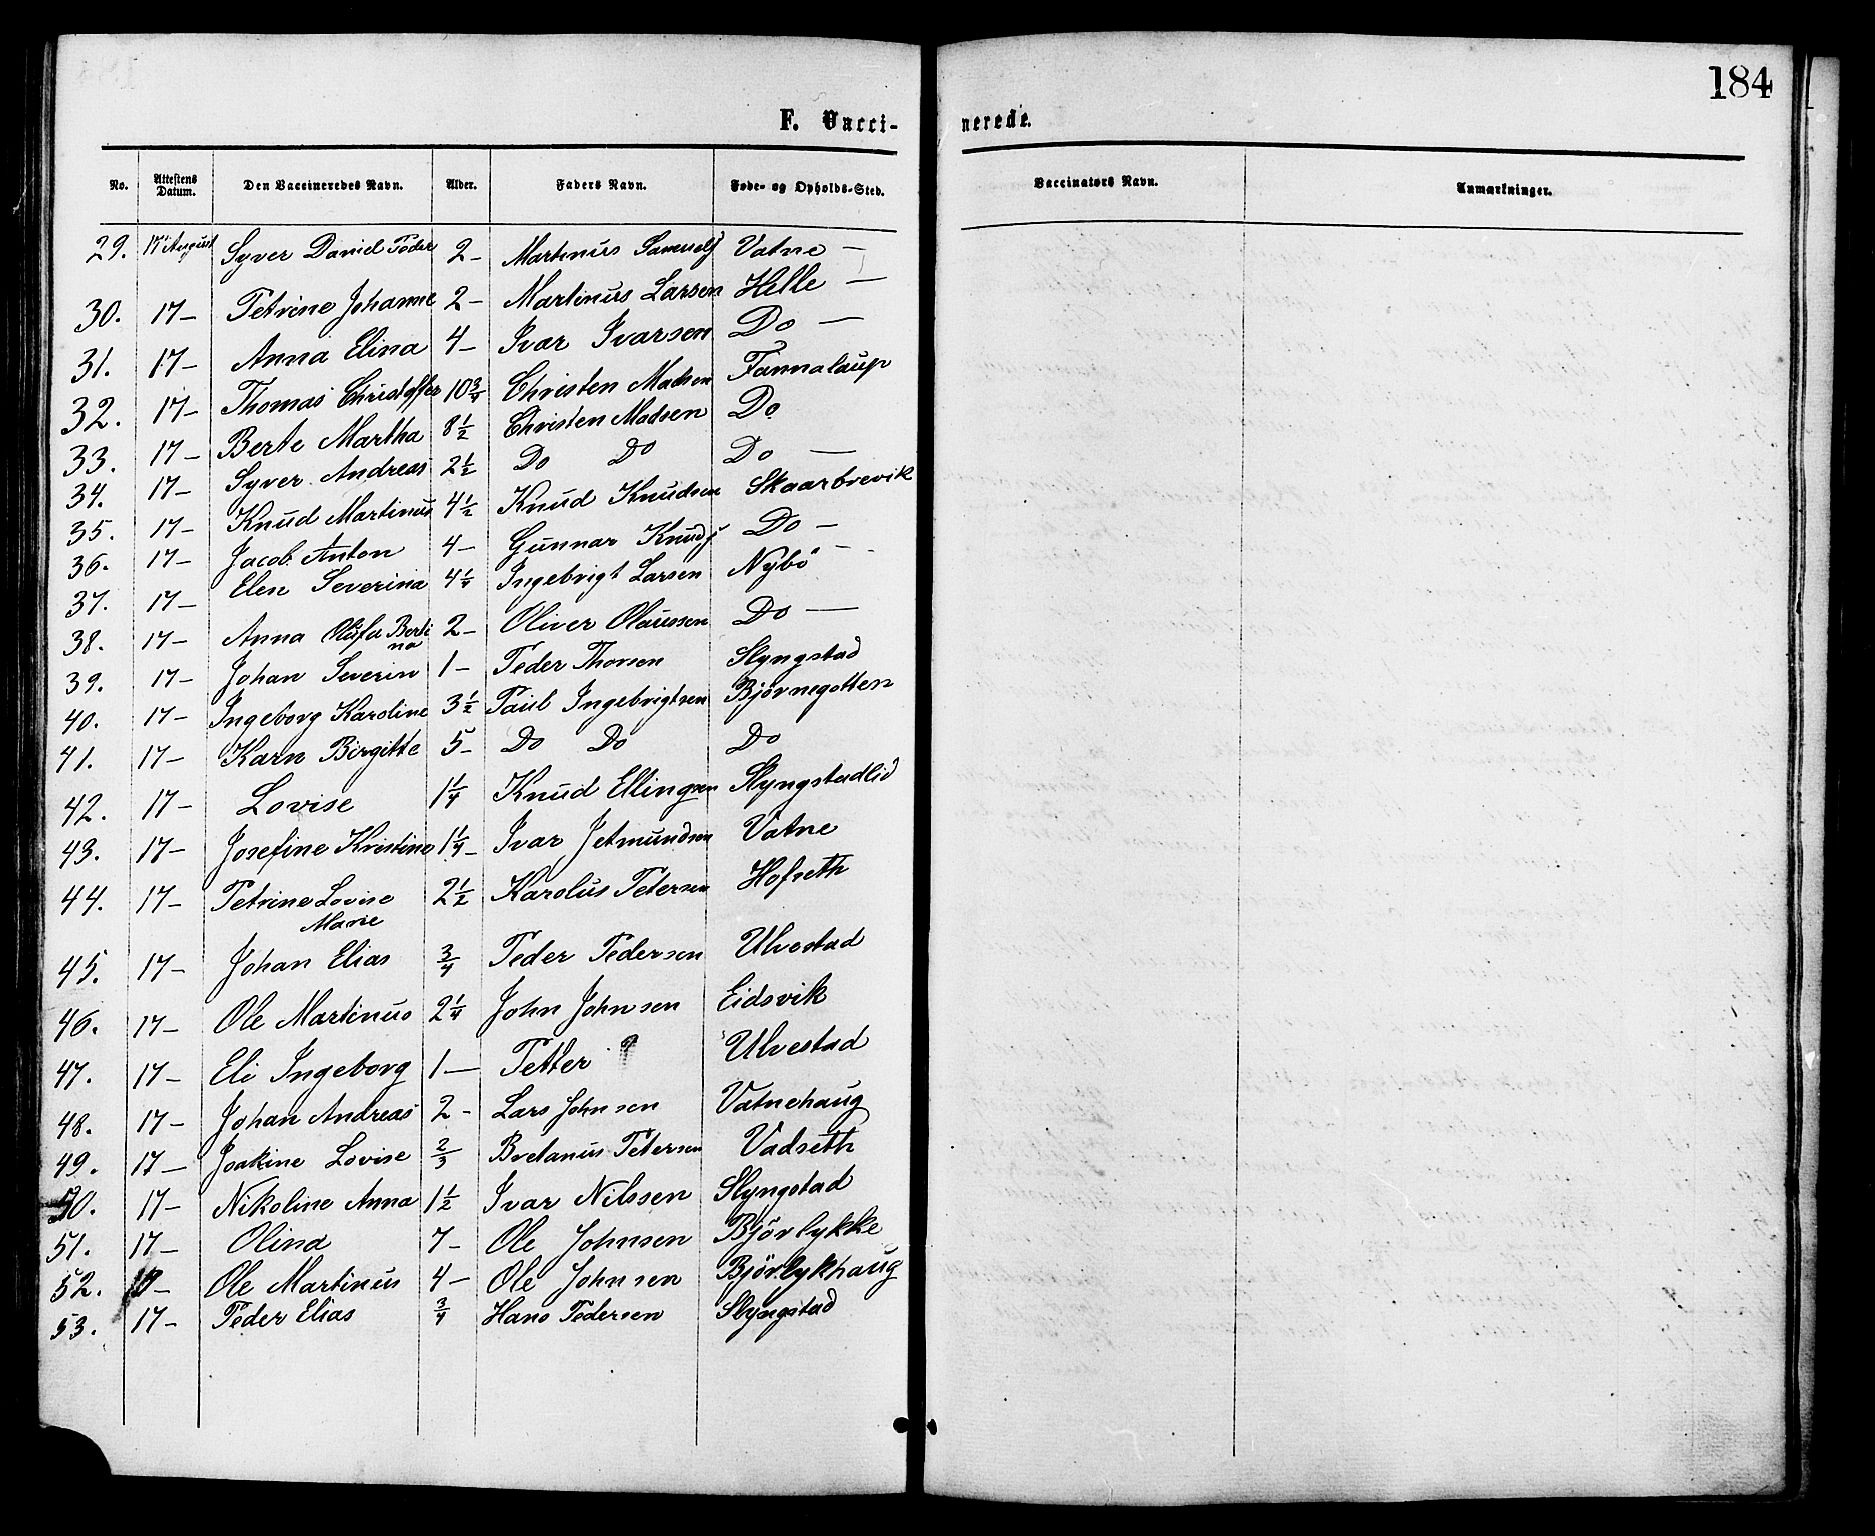 184
F. Vacci-
nerede.
No. Attestens Datum. Den Vaccineredes Navn. Alder. Faders Navn. Føde- og Opholds-Sted. Vaccinators Navn. Anmærkninger.
29. 17 August Syver Daniel Peder 2 – Martinus Samuels Vatne –
30. 17 – Petrine Johanne 2 – Martinus Larsen Helle –
31. 17 – Anna Elina 4 – Ivar Ivarsen Do –
32. 17 – Thomas Christoffer 10 3/4 Christen Madsen Fannalaup
33. 17 – Berte Martha 8 1/2 Christen Madsen Do
34. 17 – Syver Andreas 2 1/2 Do Do Do –
35. 17 – Knud Martinus 4 1/2 Knud Knudsen Skaarbrevik
36. 17 – Jacob Anton 4 – Gunnar Knuds Do –
37. 17 – Elen Severina 4 1/4 Ingebrigt Larsen Nybö –
38. 17 – Anna Olufa Berti 2 – Oliver Olaussen Do –
na
39. 17 – Johan Severin 1 – Peder Thorsen Slyngstad
40. 17 – Ingeborg Karoline 3 1/2 Paul Ingebrigtsen Bjørnegotten
41. 17 – Karn Birgitte 5 – Do Do Do
42. 17 – Lovise 1 1/4 Knud Ellingsen Slyngstadlid
43. 17 – Josefine Kristine 1 1/4 – Ivar Jetmundsen Vatne
44. 17 – Petrine Lovise 2 1/2 Karolus Petersen Hofseth
Marie
45. 17 – Johan Elias 3/4 Peder Pedersen Ulvestad
46. 17 – Ole Martinus 2 1/4 John Johnsen Eidsvik
47. 17 – Eli Ingeborg 1 – Petter ? Ulvestad
48. 17 – Johan Andreas 2 – Lars Johnsen Vatnehaug
49. 17 – Joakine Lovise 2/3 Bretanus Petersen Vadseth
50. 17 – Nikoline Anna 1 1/2 Ivar Nilssen Slyngstad
51. 17 – Olina 7 – Ole Johnsen Bjørlykke
52. – Ole Martinus 4 – Ole Johnsen Bjørlykhaug
53. 17 – Peder Elias 3/4 Hans Pedersen Slyngstad